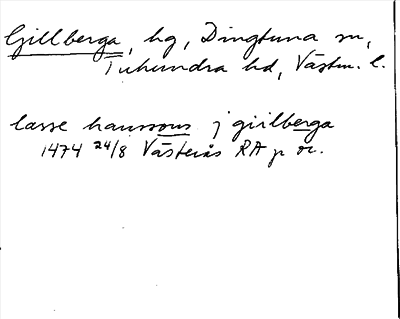 Gillberga, hg, Dingtuna sn,
Tuhundra hd, Västm. l.
lasse hanssons j giilberga
1474 24/8 Västerås RA p or.